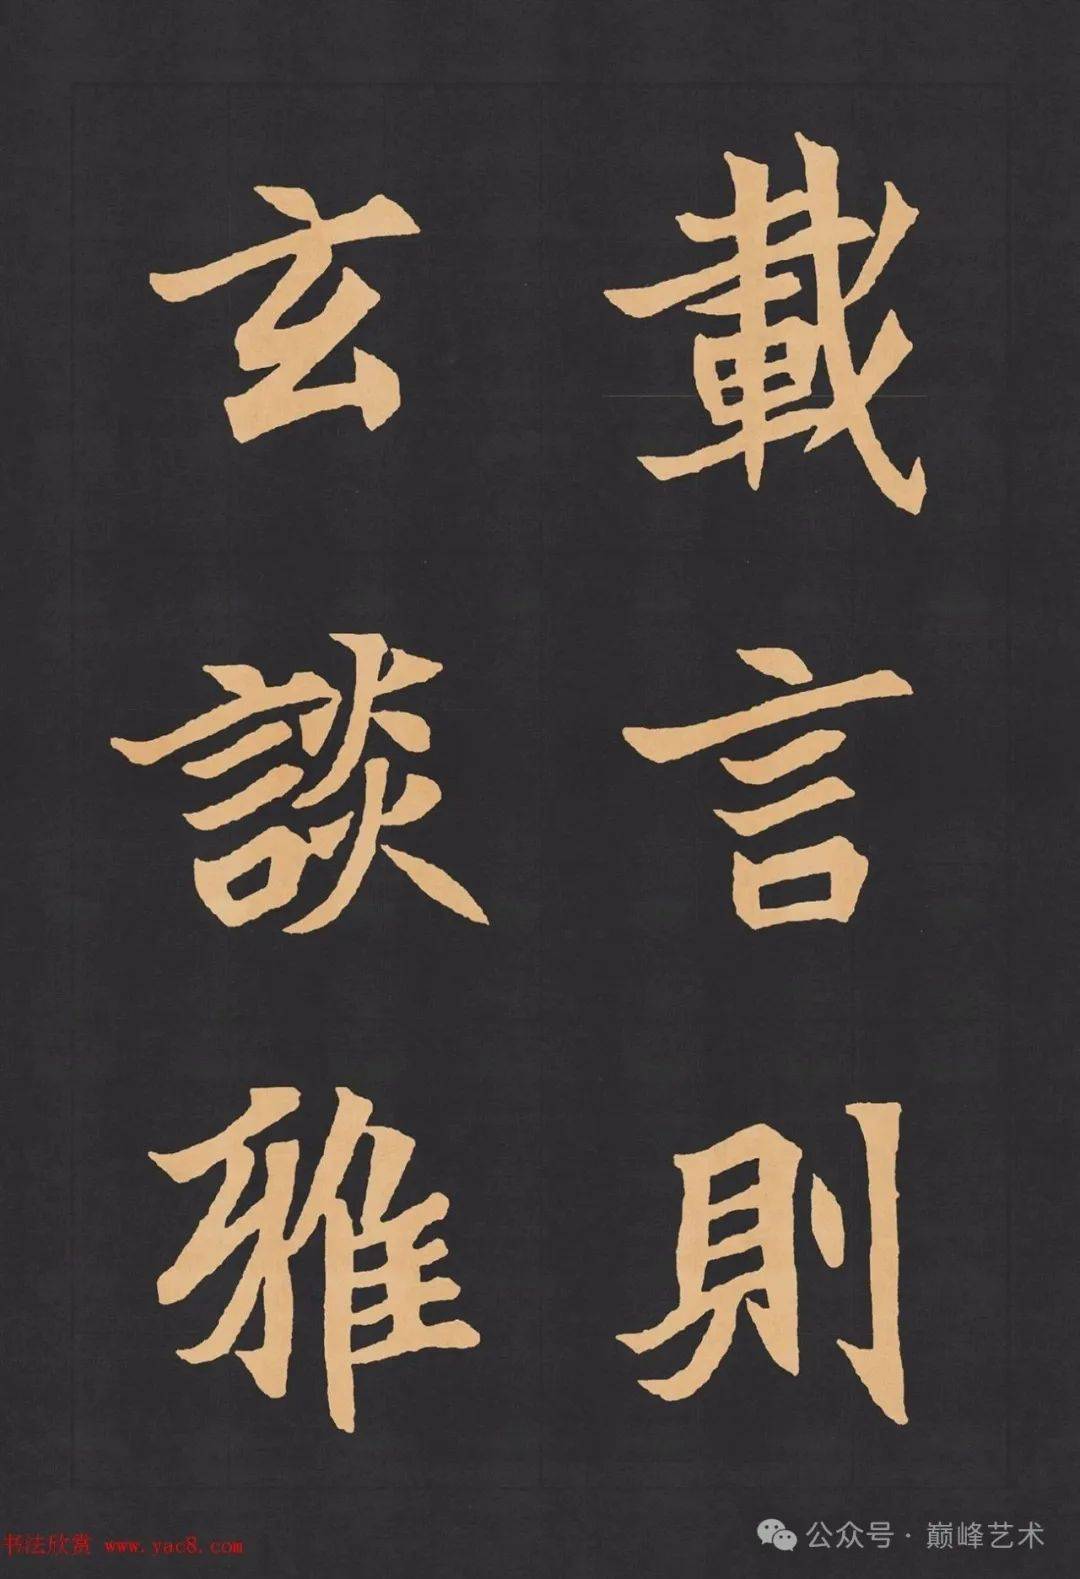 載言則
玄談雅
书法欣赏 www.yac8.com
公众号·巅峰艺术